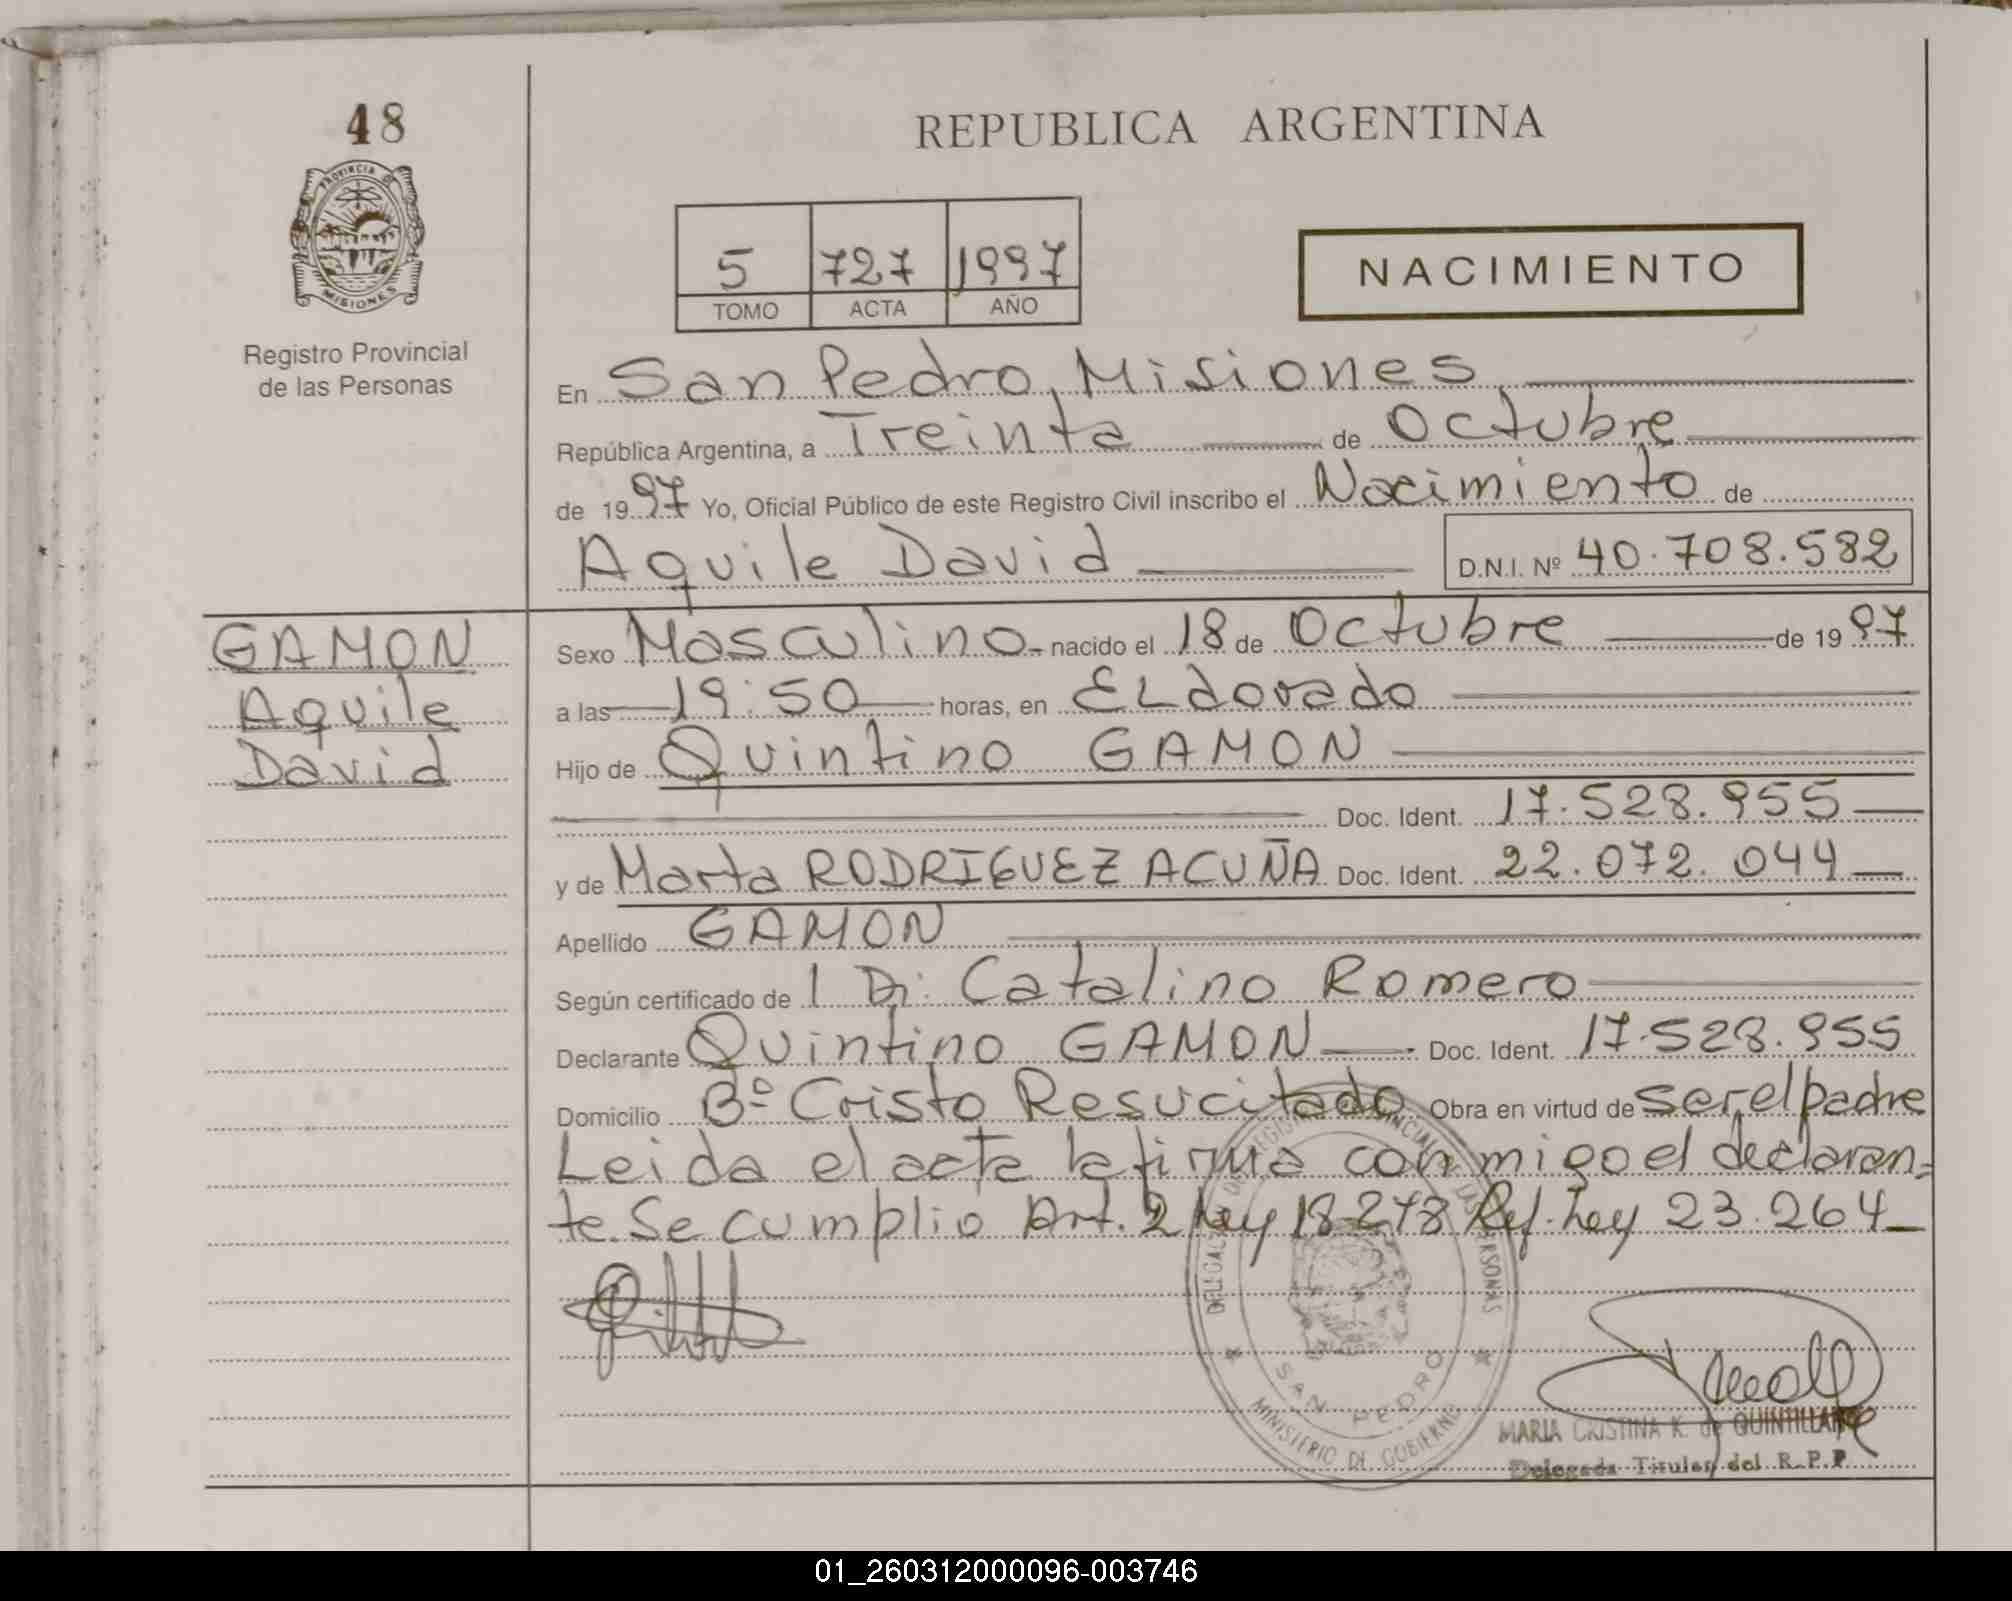 48
REPUBLICA ARGENTINA
PROVINCIA DE
MISIONES
Registro Provincial
de las Personas
5 727 1997
TOMO ACTA AÑO
NACIMIENTO
En San Pedro, Misiones
República Argentina, a Treinta de Octubre
de 1997 Yo, Oficial Público de este Registro Civil inscribo el Nacimiento de
Aquile David D.N.I. Nº 40.708.582
GAMON
Aquile
David
Sexo Masculino nacido el 18 de Octubre de 1997
a las 19:50 horas, en ELdorado
Hijo de Quintino GAMON
Doc. Ident. 17.528.955
y de Marta RODRIGUEZ ACUÑA Doc. Ident. 22.072.044
Apellido GAMON
Según certificado de 1 Dr: Catalino Romero
Declarante Quintino GAMON Doc. Ident. 17.528.955
Domicilio Bº Cristo Resucitado Obra en virtud de ser el padre
Leida el acta la firma conmigo el declaran-
te. Se cumplio Art. 2 Ley 18.248 Ref. Ley 23.264
SAN PEDRO
MINISTERIO DE GOBIERNO
MARIA CRISTINA K. de QUINTILLAN
Delegada Titular del R.P.P.
01_260312000096-003746